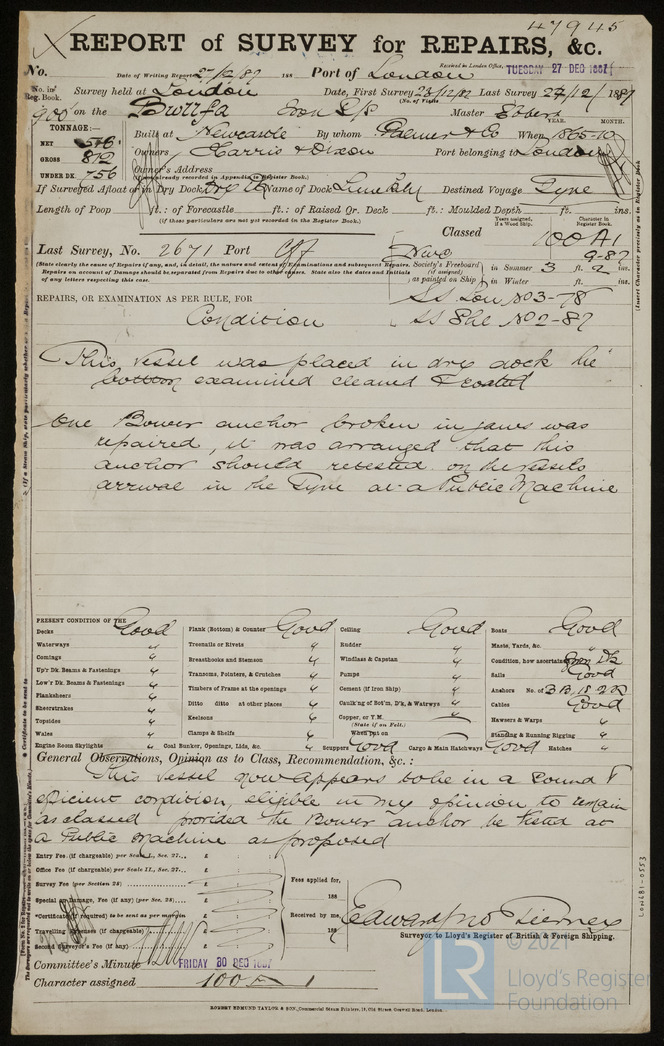 47945
REPORT of SURVEY for REPAIRS, &c.
Received in London Office, TUESDAY 27 DEC 1887
No. Date of Writing Report 27/12/87 188 Port of London
No. in Reg. Book. Survey held at London Date, First Survey 23/12/87 Last Survey 27/12/1887
(No. of Visits
900 on the Iron S/S Master
TONNAGE:— YEAR. MONTH.
NET 546 Built at Newcastle By whom Palmer & Co When 1865-10
GROSS 812 Owners Harris & Dixon Port belonging to London
UNDER DK. 756 Owner's Address
(If not already recorded in Appendix to Register Book.)
If Surveyed Afloat or in Dry Dock Dry Dk Name of Dock Destined Voyage Tyne
Length of Poop ft.: of Forecastle ft.: of Raised Qr. Deck ft.: Moulded Depth ft. ins.
(if these particulars are not yet recorded in the Register Book.)
Years assigned, if a Wood Ship. Character in Register Book.
Classed 100 A1
Last Survey, No. 2671 Port 9-87
(State clearly the cause of Repairs, if any, and, in detail, the nature and extent of Examinations and subsequent Repairs.
Repairs on account of Damage should be separated from Repairs due to other causes. State also the dates and Initials
of any letters respecting this case.
Society's Freeboard (if assigned) as painted on Ship in Summer 3 ft. 2 ins.
in Winter ft. ins.
REPAIRS, OR EXAMINATION AS PER RULE, FOR
SS Lon No 3-78
Condition SS She No 2-87
This vessel was placed in dry dock he
bottom examined cleaned & coated
One Bower anchor broken in jaws was
repaired, it was arranged that this
anchor should retested on the vessels
arrival in the Tyne at a Public Machine
PRESENT CONDITION OF THE
Decks Good Plank (Bottom) & Counter Good Ceiling Good Boats Good
Waterways " Treenails or Rivets " Rudder " Masts, Yards, &c. "
Comings " Breasthooks and Stemson " Windlass & Capstan " Condition, how ascertained from Dk
Up'r Dk. Beams & Fastenings " Transoms, Pointers, & Crutches " Pumps " Sails Good
Low'r Dk. Beams & Fastenings " Timbers of Frame at the openings " Cement (if Iron Ship) " Anchors No. of 3 B, 1 S 2 K
Planksheers " Ditto ditto at other places " Caulk'ng of Bot'm, D'k, & Watrwys " Cables Good
Sheerstrakes " Keelsons " Copper, or Y.M. Hawsers & Warps "
(State if on Felt.)
Topsides " Clamps & Shelfs " When put on Standing & Running Rigging "
Wales "
Engine Room Skylights " Coal Bunker, Openings, Lids, &c. " Scuppers Good Cargo & Main Hatchways Good Hatches "
General Observations, Opinion as to Class, Recommendation, &c. :
This vessel now appears to be in a sound &
efficient condition, eligible in my opinion to remain
as classed provided the Bower anchor be tested at
a Public Machine as proposed
Entry Fee (if chargeable) per Scale I., Sec. 27... £ : :
Office Fee (if chargeable) per Scale II., Sec. 27... £ : :
Survey Fee (per Section 28) £ : :
Special or Damage, Fee (if any) (per Sec. 28) £ : :
*Certificate (if required) to be sent as per margin
Travelling Expenses (if chargeable) £ : :
Second Surveyor's Fee (if any) £ : :
Fees applied for,
188
Received by me,
188
Surveyor to Lloyd's Register of British & Foreign Shipping.
Committee's Minute FRIDAY 30 DEC 1887
Character assigned 100 A 1
ROBERT EDMUND TAYLOR & SON, Commercial Steam Printers, 19, Old Street, Goswell Road, London.
LON681-0553
© 2021
LR Lloyd's Register
Foundation